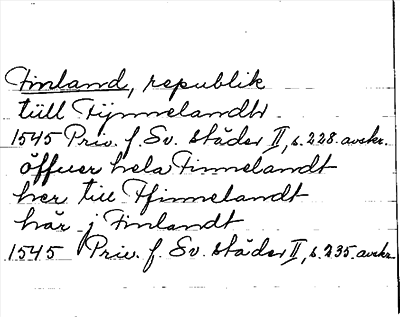 Finland, republik
tüll Fijnnelandh
1545 Priv. f. Sv. städer II, s. 228. avskr.
öffuer hela Finnelandt
her till Ffinnelandt
här j Finlandt
1545 Priv. f. Sv. städer II, s. 235. avskr.